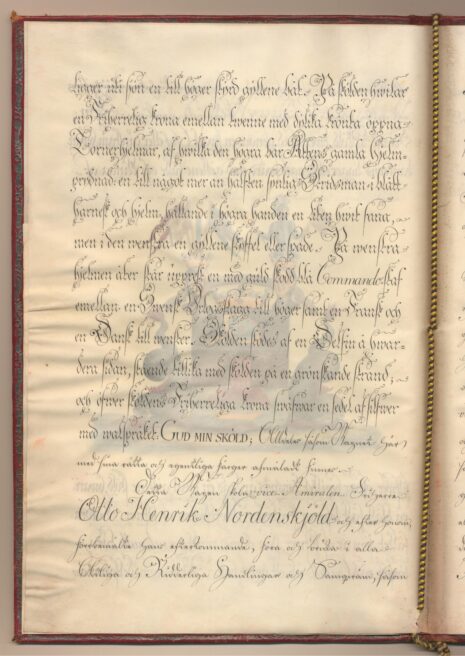 ligger uti sjön en till höger skjöd gyldene båt. På skölden hwilar
en Friherrelig krona emellan twenne med dylika krönta öpna
Tornerhjelmar, af hwilka den högra bär Ättens gamla hjelm-
prydnad en till något mer än hälften synlig Stridsman i blått
harnesk och hjelm, hållande i högra handen en liten hwit fana,
men i den wenstra en gyllene skyffel eller spade. På wenstra
hjelmen åter står upprest en med guld skodd blå Commandostaf
emellan en Swensk Örlogsflagg till höger samt en Fransk och
en Dansk till wenster. Skölden stödes af en Delfin å hwar-
dera sidan, stående tillika med skölden på en grönskande strand;
och öfwer sköldens Friherreliga krona swäfwar en sedel af silfwer
med walspråket: GUD MIN SKÖLD; Alldeles såsom Wapnet här
med sina rätta och egentliga färger afmåladt finnes.
Detta Wapen skola vice Amiralen Friherre
Otto Henrik Nordenskjöld och efter honom
förbemälte hans efterkommande, föra och bruka i alla
Adeliga och Ridderliga Handlingar och såsom